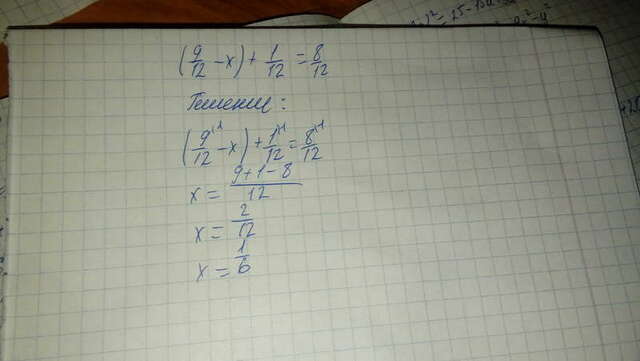 (9/12 - x) + 1/12 = 8/12
Решение:
(9^{\1}/12 - x) + 1^{\1}/12 = 8^{\1}/12
x = (9+1-8)/12
x = 2/12
x = 1/6